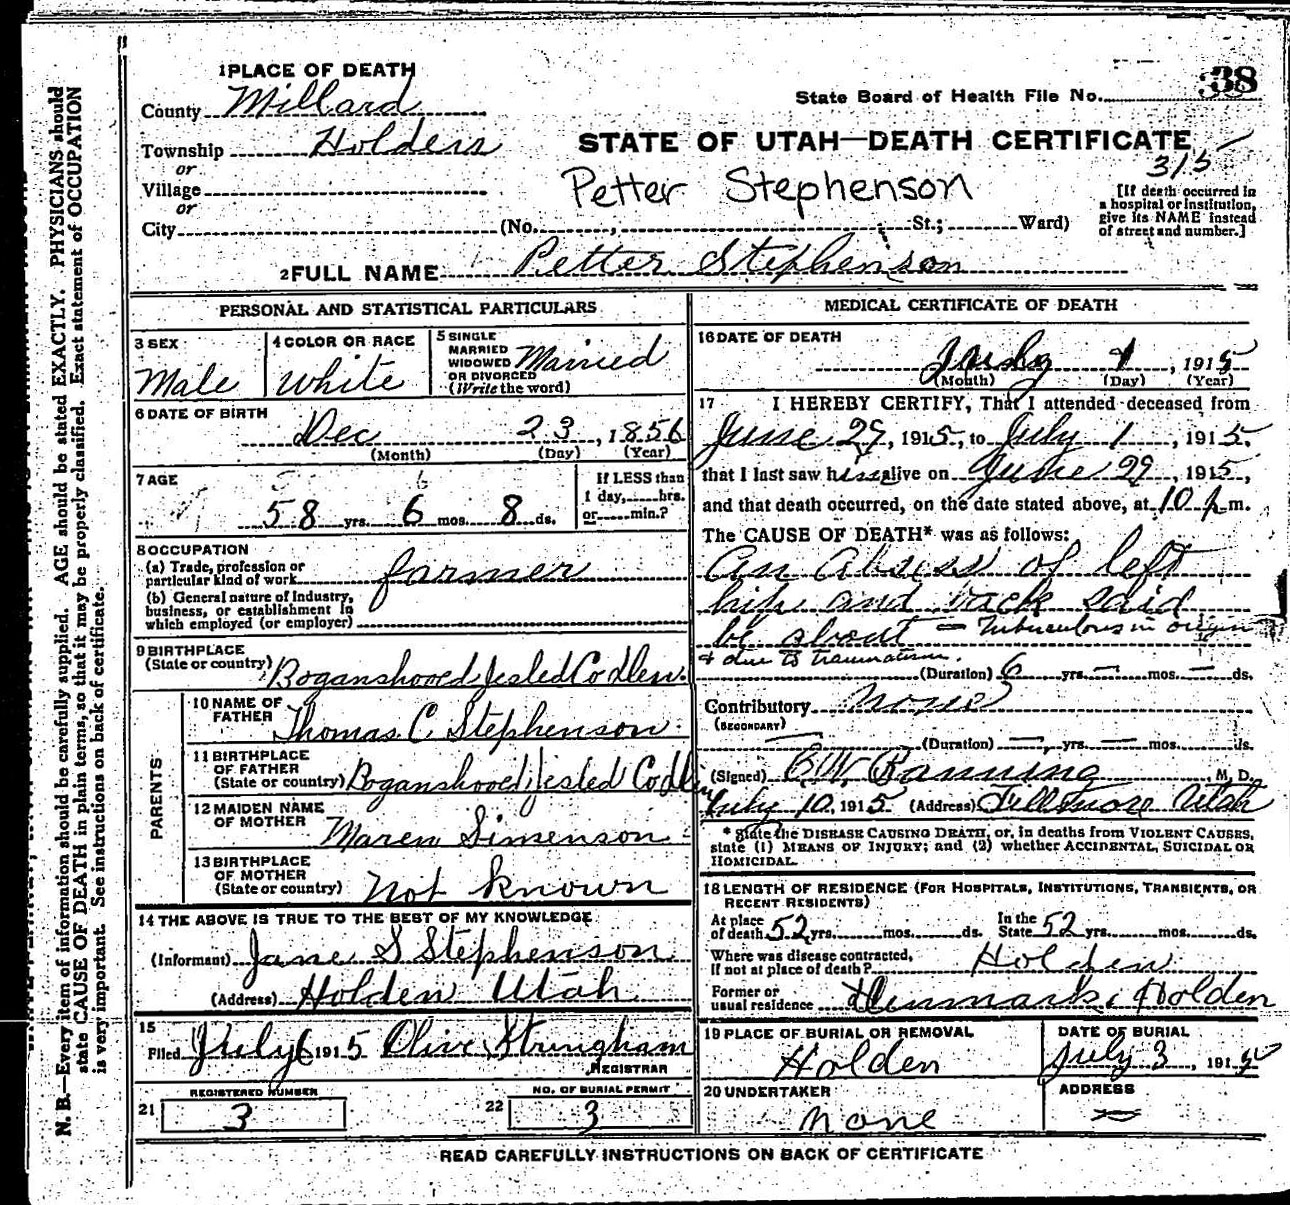 1 PLACE OF DEATH
County Millard
Township Holden
or
Village
or
City
(No. St.; Ward)
State Board of Health File No. 38
STATE OF UTAH—DEATH CERTIFICATE
315
Petter Stephenson
[If death occurred in
a hospital or institution,
give its NAME instead
of street and number.]
2 FULL NAME Petter Stephenson
PERSONAL AND STATISTICAL PARTICULARS
3 SEX
Male
4 COLOR OR RACE
White
5 SINGLE
MARRIED
WIDOWED
OR DIVORCED
(Write the word)
Married
6 DATE OF BIRTH
Dec 23, 1856
(Month) (Day) (Year)
7 AGE
58 yrs. 6 mos. 8 ds.
If LESS than
1 day, hrs.
or min.?
8 OCCUPATION
(a) Trade, profession or
particular kind of work farmer
(b) General nature of Industry,
business, or establishment in
which employed (or employer)
9 BIRTHPLACE
(State or country) Boganshoved Jesled Codlen.
PARENTS
10 NAME OF
FATHER Thomas C. Stephenson
11 BIRTHPLACE
OF FATHER
(State or country) Boganshoved Jesled Codlin
12 MAIDEN NAME
OF MOTHER Maren Simenson
13 BIRTHPLACE
OF MOTHER
(State or country) Not Known
14 THE ABOVE IS TRUE TO THE BEST OF MY KNOWLEDGE
(Informant) Jane S Stephenson
(Address) Holden Utah
15
Filed July 6 1915 Olive Stringham
REGISTRAR
REGISTERED NUMBER
21 3
NO. OF BURIAL PERMIT
22 3
MEDICAL CERTIFICATE OF DEATH
16 DATE OF DEATH
July 1, 1915
(Month) (Day) (Year)
17 I HEREBY CERTIFY, That I attended deceased from
June 29, 1915, to July 1, 1915,
that I last saw him alive on June 29, 1915,
and that death occurred, on the date stated above, at 10 p m.
The CAUSE OF DEATH* was as follows:
An abcess of left
hip and back said
be about = Tuberculous in origin
& due to traumatism.
(Duration) 6 yrs. — mos. — ds.
Contributory None
(SECONDARY)
(Duration) — yrs. — mos. ds.
(Signed) M. D.
July 10, 1915 (Address) Fillmore Utah
* State the DISEASE CAUSING DEATH, or, in deaths from VIOLENT CAUSES,
state (1) MEANS OF INJURY; and (2) whether ACCIDENTAL, SUICIDAL OR
HOMICIDAL.
18 LENGTH OF RESIDENCE (FOR HOSPITALS, INSTITUTIONS, TRANSIENTS, OR
RECENT RESIDENTS)
At place
of death 52 yrs. mos. ds.
In the
State 52 yrs. mos. ds.
Where was disease contracted,
If not at place of death? Holden
Former or
usual residence Denmark; Holden
19 PLACE OF BURIAL OR REMOVAL
Holden
DATE OF BURIAL
July 3, 1915
20 UNDERTAKER
None
ADDRESS
READ CAREFULLY INSTRUCTIONS ON BACK OF CERTIFICATE
N. B.—Every item of information should be carefully supplied. AGE should be stated EXACTLY. PHYSICIANS should
state CAUSE OF DEATH in plain terms, so that it may be properly classified. Exact statement of OCCUPATION
is very important. See instructions on back of certificate.